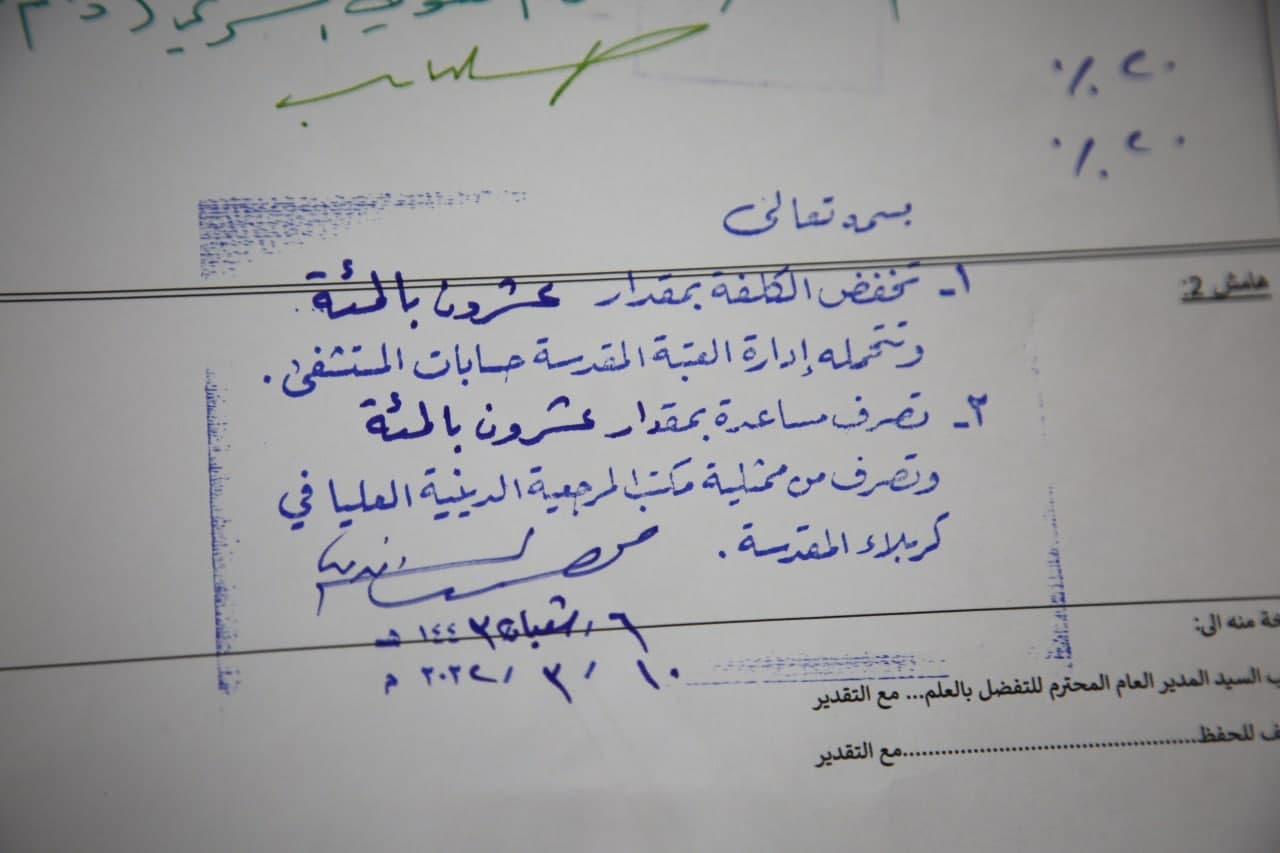 ٢٠٪
٢٠٪
بسمه تعالى
هامش 2:
١- تخفض الكلفة بمقدار عشرون بالمئة
وتتحمله إدارة العتبة المقدسة حسابات المستشفى.
٢- تصرف مساعدة بمقدار عشرون بالمئة
وتصرف من ممثلية مكتب المرجعية الدينية العليا في
كربلاء المقدسة.
٦/شعبان/١٤٤٣ هـ
١٠/٣/٢٠٢٢ م
منه الى:
السيد المدير العام المحترم للتفضل بالعلم... مع التقدير
للحفظ......................................مع التقدير